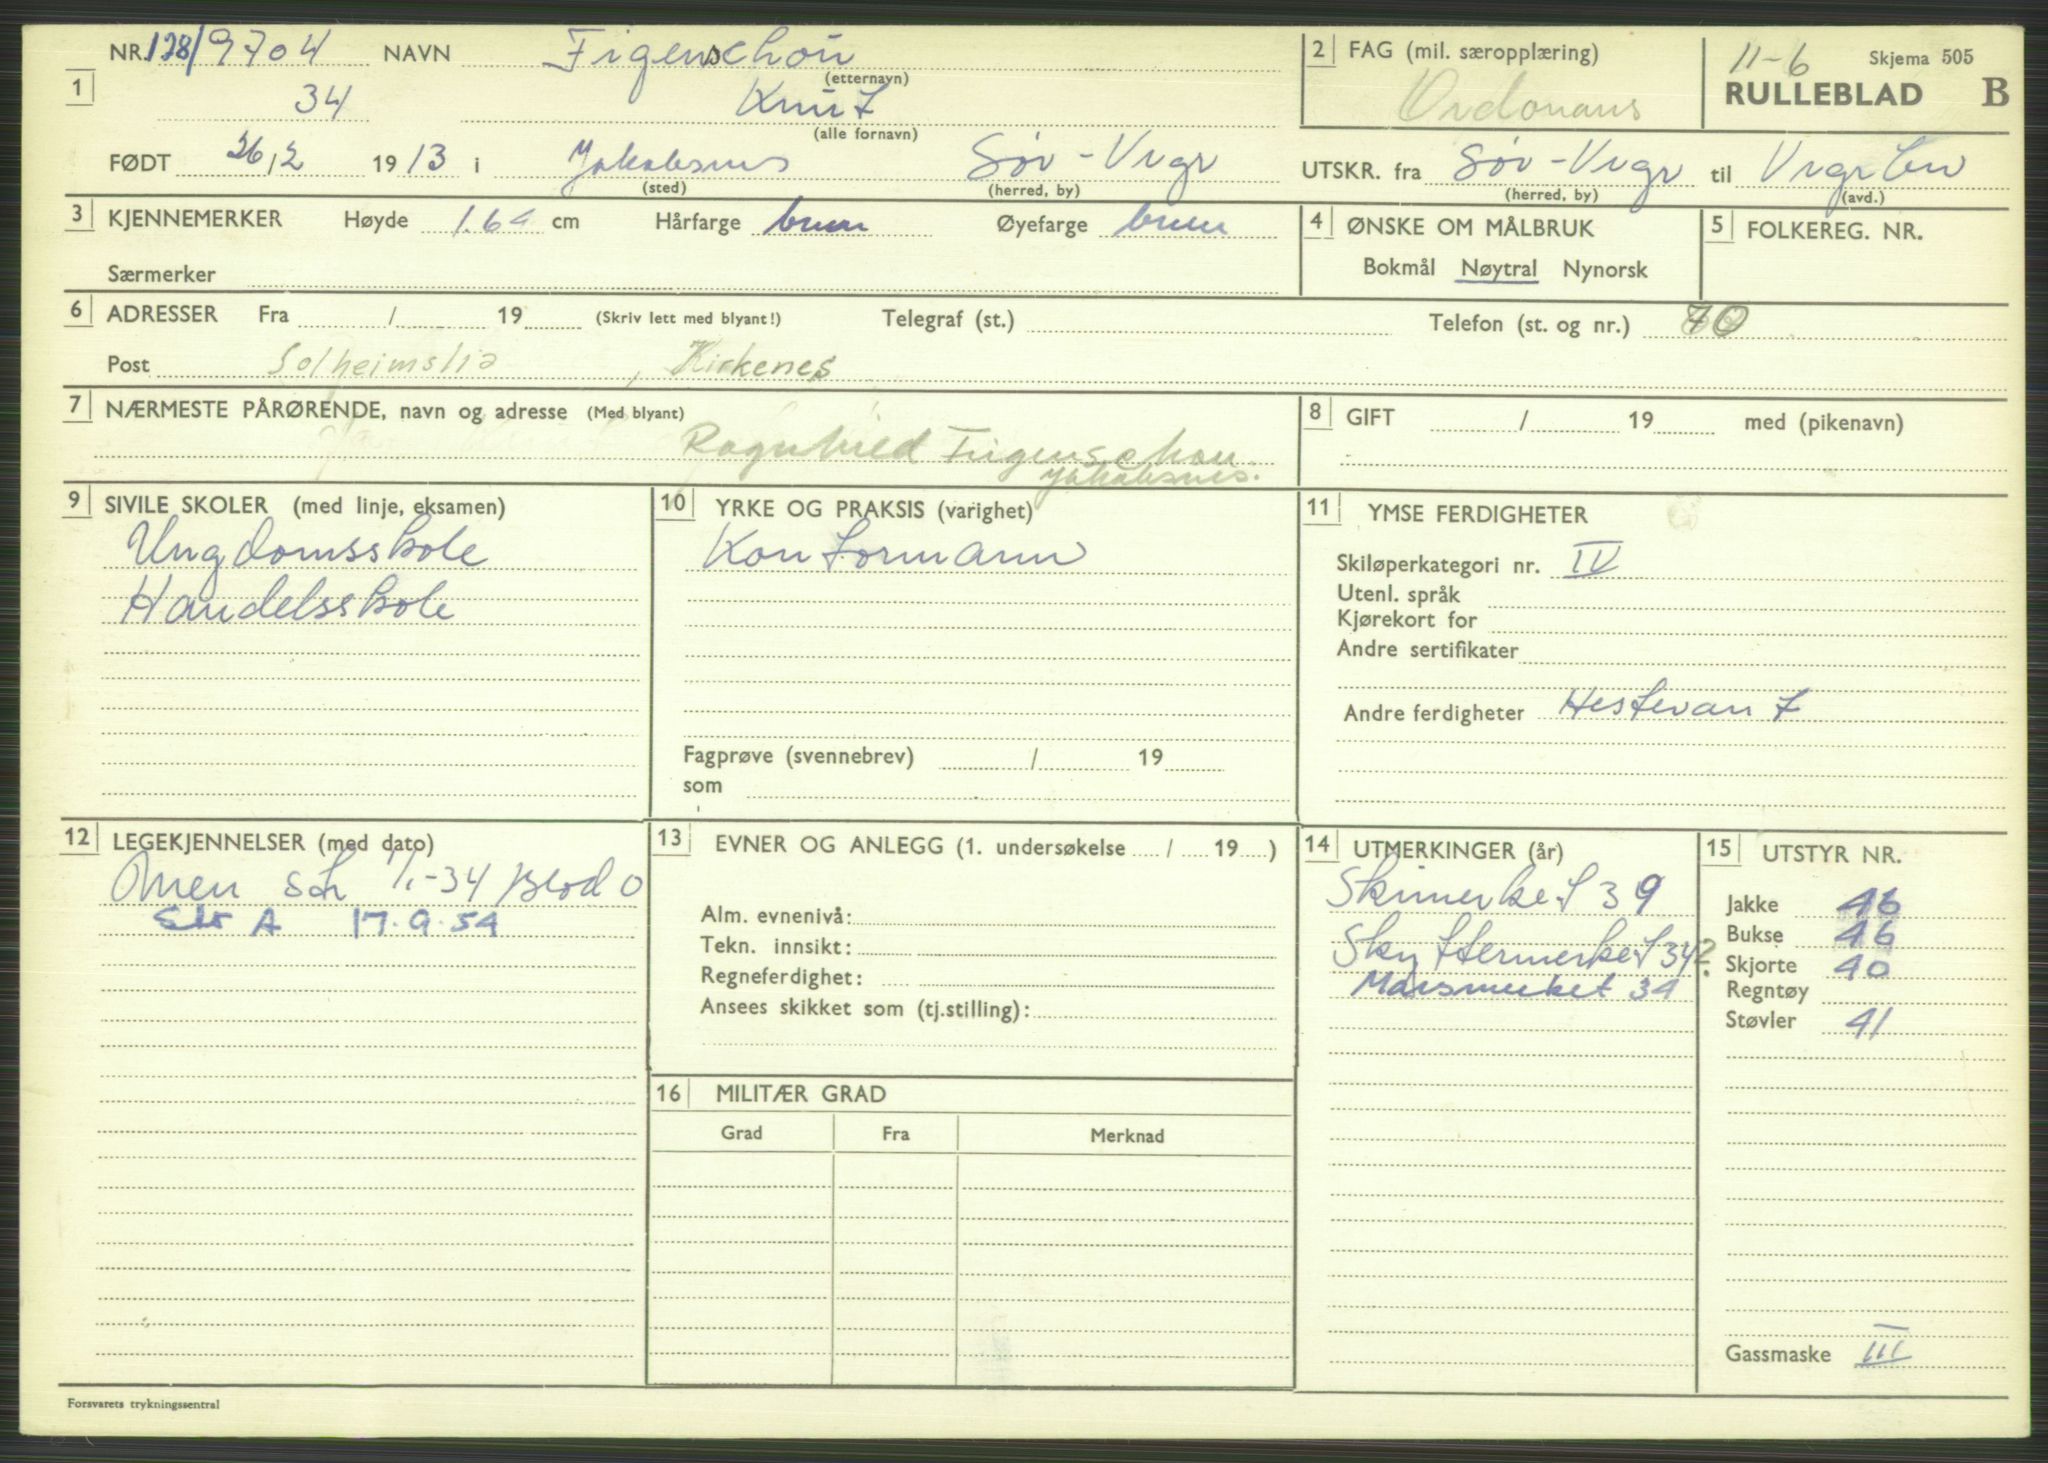 NR. 128/9704 NAVN Figenschou
(etternavn)
2 FAG (mil. særopplæring)
11-6 Skjema 505
1 34 Knut
(alle fornavn)
Ordonans
RULLEBLAD B
FØDT 26/2 1913 i Jakobsnes Sør-Vrgr
(sted) (herred, by)
UTSKR. fra Sør-Vrgr til Vrgr bn
(herred, by) (avd.)
3 KJENNEMERKER Høyde 1.64 cm Hårfarge brun Øyefarge brun
Særmerker
4 ØNSKE OM MÅLBRUK
Bokmål Nøytral Nynorsk
5 FOLKEREG. NR.
6 ADRESSER Fra / 19 (Skriv lett med blyant!) Telegraf (st.) Telefon (st. og nr.) 70
Post Solheimslia, Kirkenes
7 NÆRMESTE PÅRØRENDE, navn og adresse (Med blyant)
Ragnhild Figenschou
Jakobsnes.
8 GIFT / 19 med (pikenavn)
9 SIVILE SKOLER (med linje, eksamen)
Ungdomsskole
Handelsskole
10 YRKE OG PRAKSIS (varighet)
Kontormann
Fagprøve (svennebrev) / 19
som
11 YMSE FERDIGHETER
Skiløperkategori nr. IV
Utenl. språk
Kjørekort for
Andre sertifikater
Andre ferdigheter Hestevant
12 LEGEKJENNELSER (med dato)
1/1-34 Blod O
Str A 17.9.54
13 EVNER OG ANLEGG (1. undersøkelse / 19 )
Alm. evnenivå:
Tekn. innsikt:
Regneferdighet:
Ansees skikket som (tj.stilling):
16 MILITÆR GRAD
Grad Fra Merknad
14 UTMERKINGER (år)
Skimerket 39
Skyttermerket 34?
Marsmerket 34
15 UTSTYR NR.
Jakke 46
Bukse 46
Skjorte 40
Regntøy
Støvler 41
Gassmaske III
Forsvarets trykningssentral